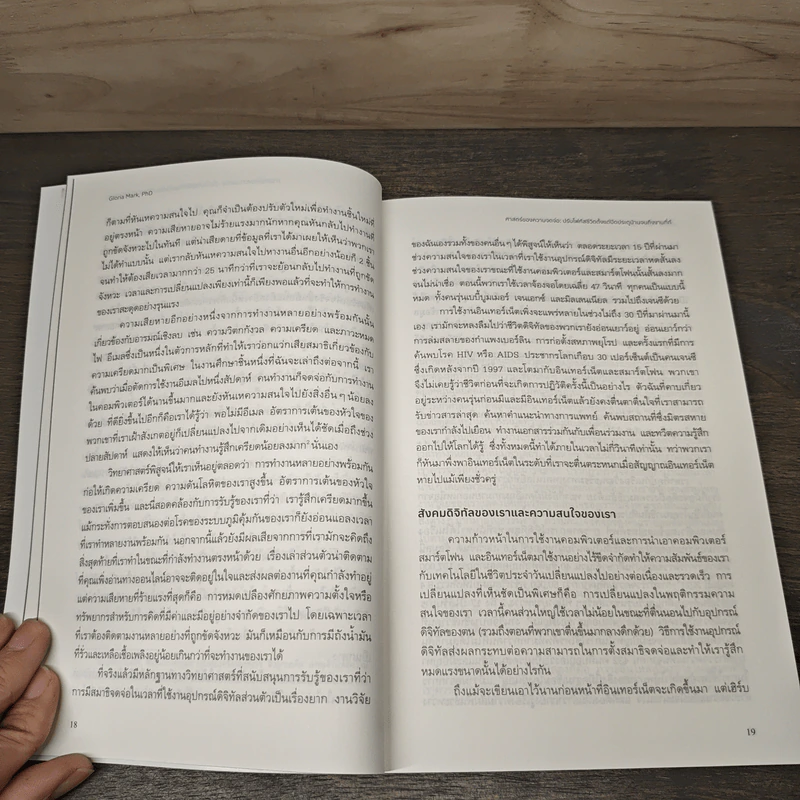 Gloria Mark, PhD
ก็ตามที่หันเหความสนใจไป คุณก็จำเป็นต้องปรับตัวใหม่เพื่อทำงานชิ้นใหม่ที่
อยู่ตรงหน้า ความเสียหายอาจไม่ร้ายแรงมากนักหากคุณหันกลับไปทำงานที่
ถูกขัดจังหวะไปในทันที แต่น่าเสียดายที่ข้อมูลที่เราได้มาเผยให้เห็นว่าพวกเรา
ไม่ได้ทำแบบนั้น แต่เรากลับหันเหความสนใจไปทำงานอื่นอีกอย่างน้อยก็ 2 ชิ้น
จนทำให้ต้องเสียเวลามากกว่า 25 นาทีกว่าที่เราจะย้อนกลับไปทำงานที่ถูกขัด
จังหวะ เวลาและการเปลี่ยนแปลงเพียงเท่านี้ก็เพียงพอแล้วที่จะทำให้การทำงาน
ของเราสะดุดอย่างรุนแรง
ความเสียหายอีกอย่างหนึ่งจากการทำงานหลายอย่างพร้อมกันนั้น
เกี่ยวข้องกับอารมณ์เชิงลบ เช่น ความวิตกกังวล ความเครียด และภาวะหมด
ไฟ อีเมลซึ่งเป็นหนึ่งในตัวการหลักที่ทำให้เราว่อกแว่กเสียสมาธิเกี่ยวข้องกับ
ความเครียดมากเป็นพิเศษ ในงานศึกษาชิ้นหนึ่งที่ฉันจะเล่าถึงต่อจากนี้ เรา
ค้นพบว่าเมื่อตัดการใช้งานอีเมลไปหนึ่งสัปดาห์ คนทำงานก็จดจ่อกับการทำงาน
ในคอมพิวเตอร์ได้นานขึ้นมากและยังหันเหความสนใจไปยังสิ่งอื่นๆ น้อยลง
ด้วย ที่ดียิ่งขึ้นไปอีกก็คือเราได้รู้ว่า พอไม่มีอีเมล อัตราการเต้นของหัวใจของ
พวกเขาที่เราเฝ้าสังเกตอยู่ก็เปลี่ยนแปลงไปจากเดิมอย่างเห็นได้ชัดเมื่อถึงช่วง
ปลายสัปดาห์ แสดงให้เห็นว่าคนทำงานรู้สึกเครียดน้อยลงมาก² นั่นเอง
วิทยาศาสตร์พิสูจน์ให้เราเห็นอยู่ตลอดว่า การทำงานหลายอย่างพร้อมกัน
ก่อให้เกิดความเครียด ความดันโลหิตของเราสูงขึ้น อัตราการเต้นของหัวใจ
ของเราเพิ่มขึ้น และนี่สอดคล้องกับการรับรู้ของเราที่ว่า เรารู้สึกเครียดมากขึ้น
แม้กระทั่งการตอบสนองต่อโรคของระบบภูมิคุ้มกันของเราก็ยังอ่อนแอลงเวลา
ที่เราทำหลายงานพร้อมกัน นอกจากนี้แล้วยังมีผลเสียจากการที่เรามักจะคิดถึง
สิ่งสุดท้ายที่เราทำในขณะที่กำลังทำงานตรงหน้าด้วย เรื่องเล่าส่วนตัวน่าติดตาม
ที่คุณเพิ่งอ่านทางออนไลน์อาจจะติดอยู่ในใจและส่งผลต่องานที่คุณกำลังทำอยู่
แต่ความเสียหายที่ร้ายแรงที่สุดก็คือ การหมดเปลืองศักยภาพความตั้งใจหรือ
ทรัพยากรสำหรับการคิดที่มีค่าและมีอยู่อย่างจำกัดของเราไป โดยเฉพาะเวลา
ที่เราต้องติดตามงานหลายอย่างที่ถูกขัดจังหวะ มันก็เหมือนกับการมีถังน้ำมัน
ที่รั่วและเหลือเชื้อเพลิงอยู่น้อยเกินกว่าที่จะทำงานของเราได้
ที่จริงแล้วมีหลักฐานทางวิทยาศาสตร์ที่สนับสนุนการรับรู้ของเราที่ว่า
การมีสมาธิจดจ่อในเวลาที่ใช้งานอุปกรณ์ดิจิทัลส่วนตัวเป็นเรื่องยาก งานวิจัย
18
ศาสตร์ของความจดจ่อ: ปรับโฟกัสชีวิตเพื่อชีวิตประจำวันจดจ่อกับงานที่ดี
ของฉันเองรวมทั้งของคนอื่นๆ ได้พิสูจน์ให้เห็นว่า ตลอดระยะเวลา 15 ปีที่ผ่านมา
ช่วงความสนใจของเราในเวลาที่เราใช้งานอุปกรณ์ดิจิทัลมีระยะเวลาหดสั้นลง
ช่วงความสนใจของเราขณะที่ใช้งานคอมพิวเตอร์และสมาร์ตโฟนนั้นสั้นลงมาก
จนไม่น่าเชื่อ ตอนนี้พวกเราใช้เวลาจ้องจอโดยเฉลี่ย 47 วินาที ทุกคนเป็นแบบนี้
หมด ทั้งคนรุ่นเบบี้บูมเมอร์ เจนเอกซ์ และมิลเลนเนียล รวมไปถึงเจนซีด้วย
การใช้งานอินเทอร์เน็ตเพิ่งจะแพร่หลายในช่วงไม่ถึง 30 ปีที่ผ่านมานี้
เอง เรามักจะหลงลืมไปว่าชีวิตดิจิทัลของพวกเรายังอ่อนเยาว์อยู่ อ่อนเยาว์กว่า
การล่มสลายของกำแพงเบอร์ลิน การก่อตั้งสหภาพยุโรป และครั้งแรกที่มีการ
ค้นพบโรค HIV หรือ AIDS ประชากรโลกเกือบ 30 เปอร์เซ็นต์เป็นคนเจนซี
ซึ่งเกิดหลังจากปี 1997 และโตมากับอินเทอร์เน็ตและสมาร์ตโฟน พวกเขา
จึงไม่เคยรู้ว่าชีวิตก่อนที่จะเกิดการปฏิวัติครั้งนี้เป็นอย่างไร ตัวฉันที่คาบเกี่ยว
อยู่ระหว่างคนรุ่นก่อนมีและมีอินเทอร์เน็ตแล้วยังคงตื่นตาตื่นใจที่เราสามารถ
รับข่าวสารล่าสุด ค้นหาคำแนะนำทางการแพทย์ ค้นพบสถานที่ซึ่งมิตรสหาย
ของเรากำลังไปเยือน ทำงานเอกสารร่วมกันกับเพื่อนร่วมงาน และทวีตความรู้สึก
ออกไปให้โลกได้รู้ ซึ่งทั้งหมดนี้ทำภายในเวลาไม่กี่วินาทีเท่านั้น ทว่าพวกเรา
ก็หันมาพึ่งพาอินเทอร์เน็ตในระดับที่เราจะตื่นตระหนกเมื่อสัญญาณอินเทอร์เน็ต
หายไปแม้เพียงชั่วครู่
สังคมดิจิทัลของเราและความสนใจของเรา
ความก้าวหน้าในการใช้งานคอมพิวเตอร์และการนำเอาคอมพิวเตอร์
สมาร์ตโฟน และอินเทอร์เน็ตมาใช้งานอย่างไร้ขีดจำกัดทำให้ความสัมพันธ์ของเรา
กับเทคโนโลยีในชีวิตประจำวันเปลี่ยนแปลงไปอย่างต่อเนื่องและรวดเร็ว การ
เปลี่ยนแปลงที่เห็นชัดเป็นพิเศษก็คือ การเปลี่ยนแปลงในพฤติกรรมความ
สนใจของเรา เวลานี้คนส่วนใหญ่ใช้เวลาไม่น้อยในขณะที่ตื่นนอนไปกับอุปกรณ์
ดิจิทัลของตน (รวมถึงตอนที่พวกเขาตื่นขึ้นมากลางดึกด้วย) วิธีการใช้งานอุปกรณ์
ดิจิทัลส่งผลกระทบต่อความสามารถในการตั้งสมาธิจดจ่อและทำให้เรารู้สึก
หมดแรงขนาดนั้นได้อย่างไรกัน
ถึงแม้จะเขียนเอาไว้นานก่อนหน้าที่อินเทอร์เน็ตจะเกิดขึ้นมา แต่เฮิร์บ
19